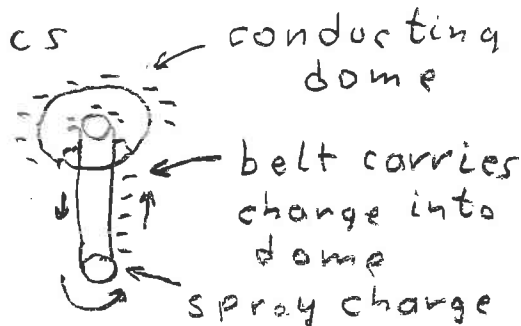 cs
conducting
dome
belt carries
charge into
dome
spray charge